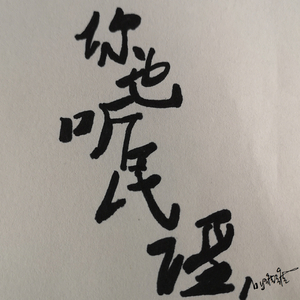 你也听民谣